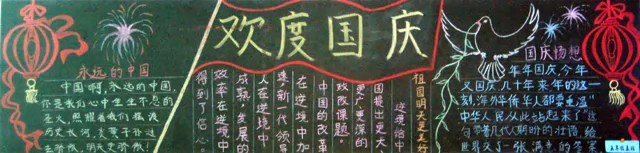 欢度国庆
永远的中国
中国啊,永远的中国,
你是我们心中生生不息的
圣火,照耀着我们走过
历史长河,炎黄子孙
祖国明天更美好
逆境给中
国提出更大
更广更深的
改改课题,
中国的改革
在逆境中加
速新一代领导
人在逆境中
成熟,发展的
效率在逆境中
得到了信心。
国庆畅想
年年国庆今年
又国庆几十年来年的这一
刻,海外侨华人都要重温“
中华人民从此站起来了”这
句带着几代人期盼的壮语,给
世界交了一张满意的答案